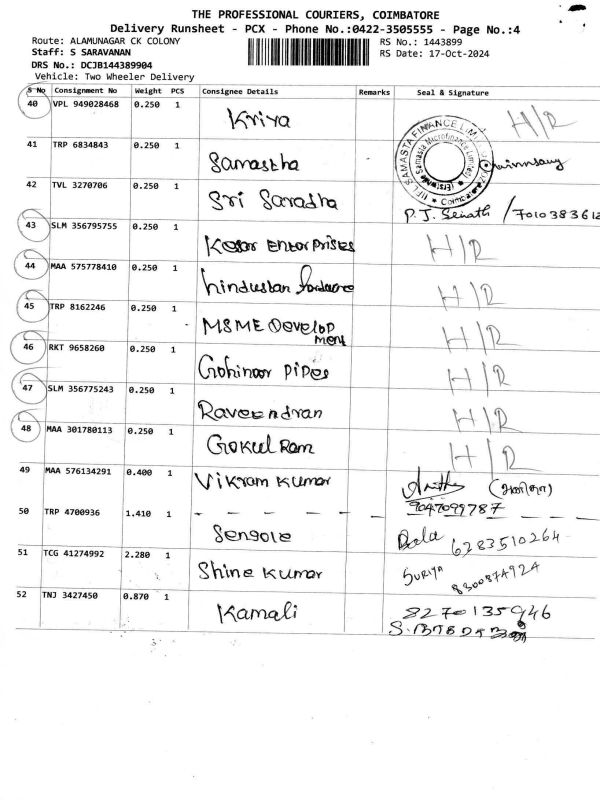 THE PROFESSIONAL COURIERS, COIMBATORE
Delivery Runsheet - PCX - Phone No.:0422-3505555 - Page No.:4
Route: ALAMUNAGAR CK COLONY RS No.: 1443899
Staff: S SARAVANAN RS Date: 17-Oct-2024
DRS No.: DCJB144389904
Vehicle: Two Wheeler Delivery
S No Consignment No Weight PCS Consignee Details Remarks Seal & Signature
40 VPL 949028468 0.250 1 Kriya H/R
41 TRP 6834843 0.250 1 Samastha
42 TVL 3270706 0.250 1 Sri Saradha P. J. /7010383612
43 SLM 356795755 0.250 1 Kosar Enterprises H/R
44 MAA 575778410 0.250 1 hindustan hardware H/R
45 TRP 8162246 0.250 1 MSME Develop
ment H/R
46 RKT 9658260 0.250 1 Gohinoor Pipes H/R
47 SLM 356775243 0.250 1 Raveendran H/R
48 MAA 301780113 0.250 1 Gokul Ram H/R
49 MAA 576134291 0.400 1 Vikram Kumar
9047099787
50 TRP 4700936 1.410 1 Bala 6283510264
51 TCG 41274992 2.280 1 Shine Kumar Suriya
52 TNJ 3427450 0.870 1 Kamali 8270135946